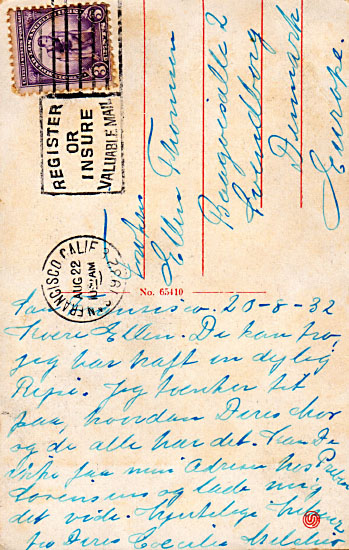 3
REGISTER
OR
INSURE
VALUABLE MAIL
SAN FRANCISCO CALIF.
AUG 22
AM
1932
Frøken
Ellen Thomsen
Svendborg
Denmark
Europe.
No. 65410
San Francisco. 20-8-32
Kære Ellen. De kan tro,
jeg har haft en dejlig
Rejse. Jeg tænker tit
paa, hvordan Deres Mor
og de alle har det. Kan De
ikke faa min Adresse hos
Sorensens og lade mig
det vide. Hjertelige
fra Deres Cecilie